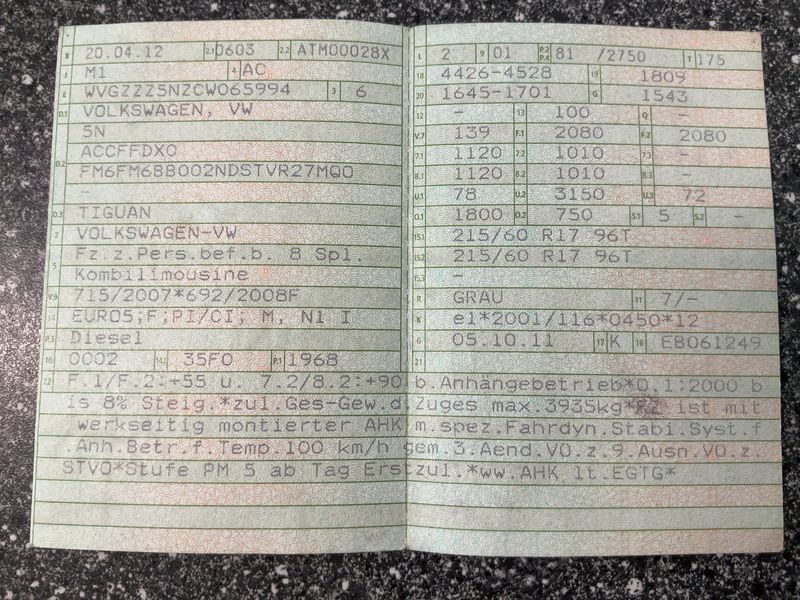 B 20.04.12 2.1 0603 2.2 ATM00028X
J M1 4 AC
E WVGZZZ5NZCW065994 3 6
D.1 VOLKSWAGEN, VW
5N
D.2 ACCFFDX0
FM6FM6BB002NDSTVR27MQ0
-
D.3 TIGUAN
2 VOLKSWAGEN-VW
5 Fz.z.Pers.bef.b. 8 Spl.
Kombilimousine
V.9 715/2007*692/2008F
14 EURO5;F;PI/CI; M, N1 I
P.3 Diesel
10 0002 14.1 35F0 P.1 1968
L 2 9 01 P.2 P.4 81 /2750 T 175
18 4426-4528 19 1809
20 1645-1701 G 1543
12 - 13 100 Q -
V.7 139 F.1 2080 F.2 2080
7.1 1120 7.2 1010 7.3 -
8.1 1120 8.2 1010 8.3 -
U.1 78 U.2 3150 U.3 72
O.1 1800 O.2 750 S.1 5 S.2 -
15.1 215/60 R17 96T
15.2 215/60 R17 96T
15.3 -
R GRAU 11 7/-
K e1*2001/116*0450*12
6 05.10.11 17 K 16 EB061249
21
22 F.1/F.2:+55 u. 7.2/8.2:+90 b.Anhängebetrieb*O.1:2000 b
is 8% Steig.*zul.Ges-Gew.d.Zuges max.3935kg* ist mit
werkseitig montierter AHK m.spez.Fahrdyn.Stabi.Syst.f
.Anh.Betr.f.Temp.100 km/h gem.3.Aend.VO.z.9.Ausn.VO.z.
STVO*Stufe PM 5 ab Tag Erstzul.*ww.AHK lt.EGTG*